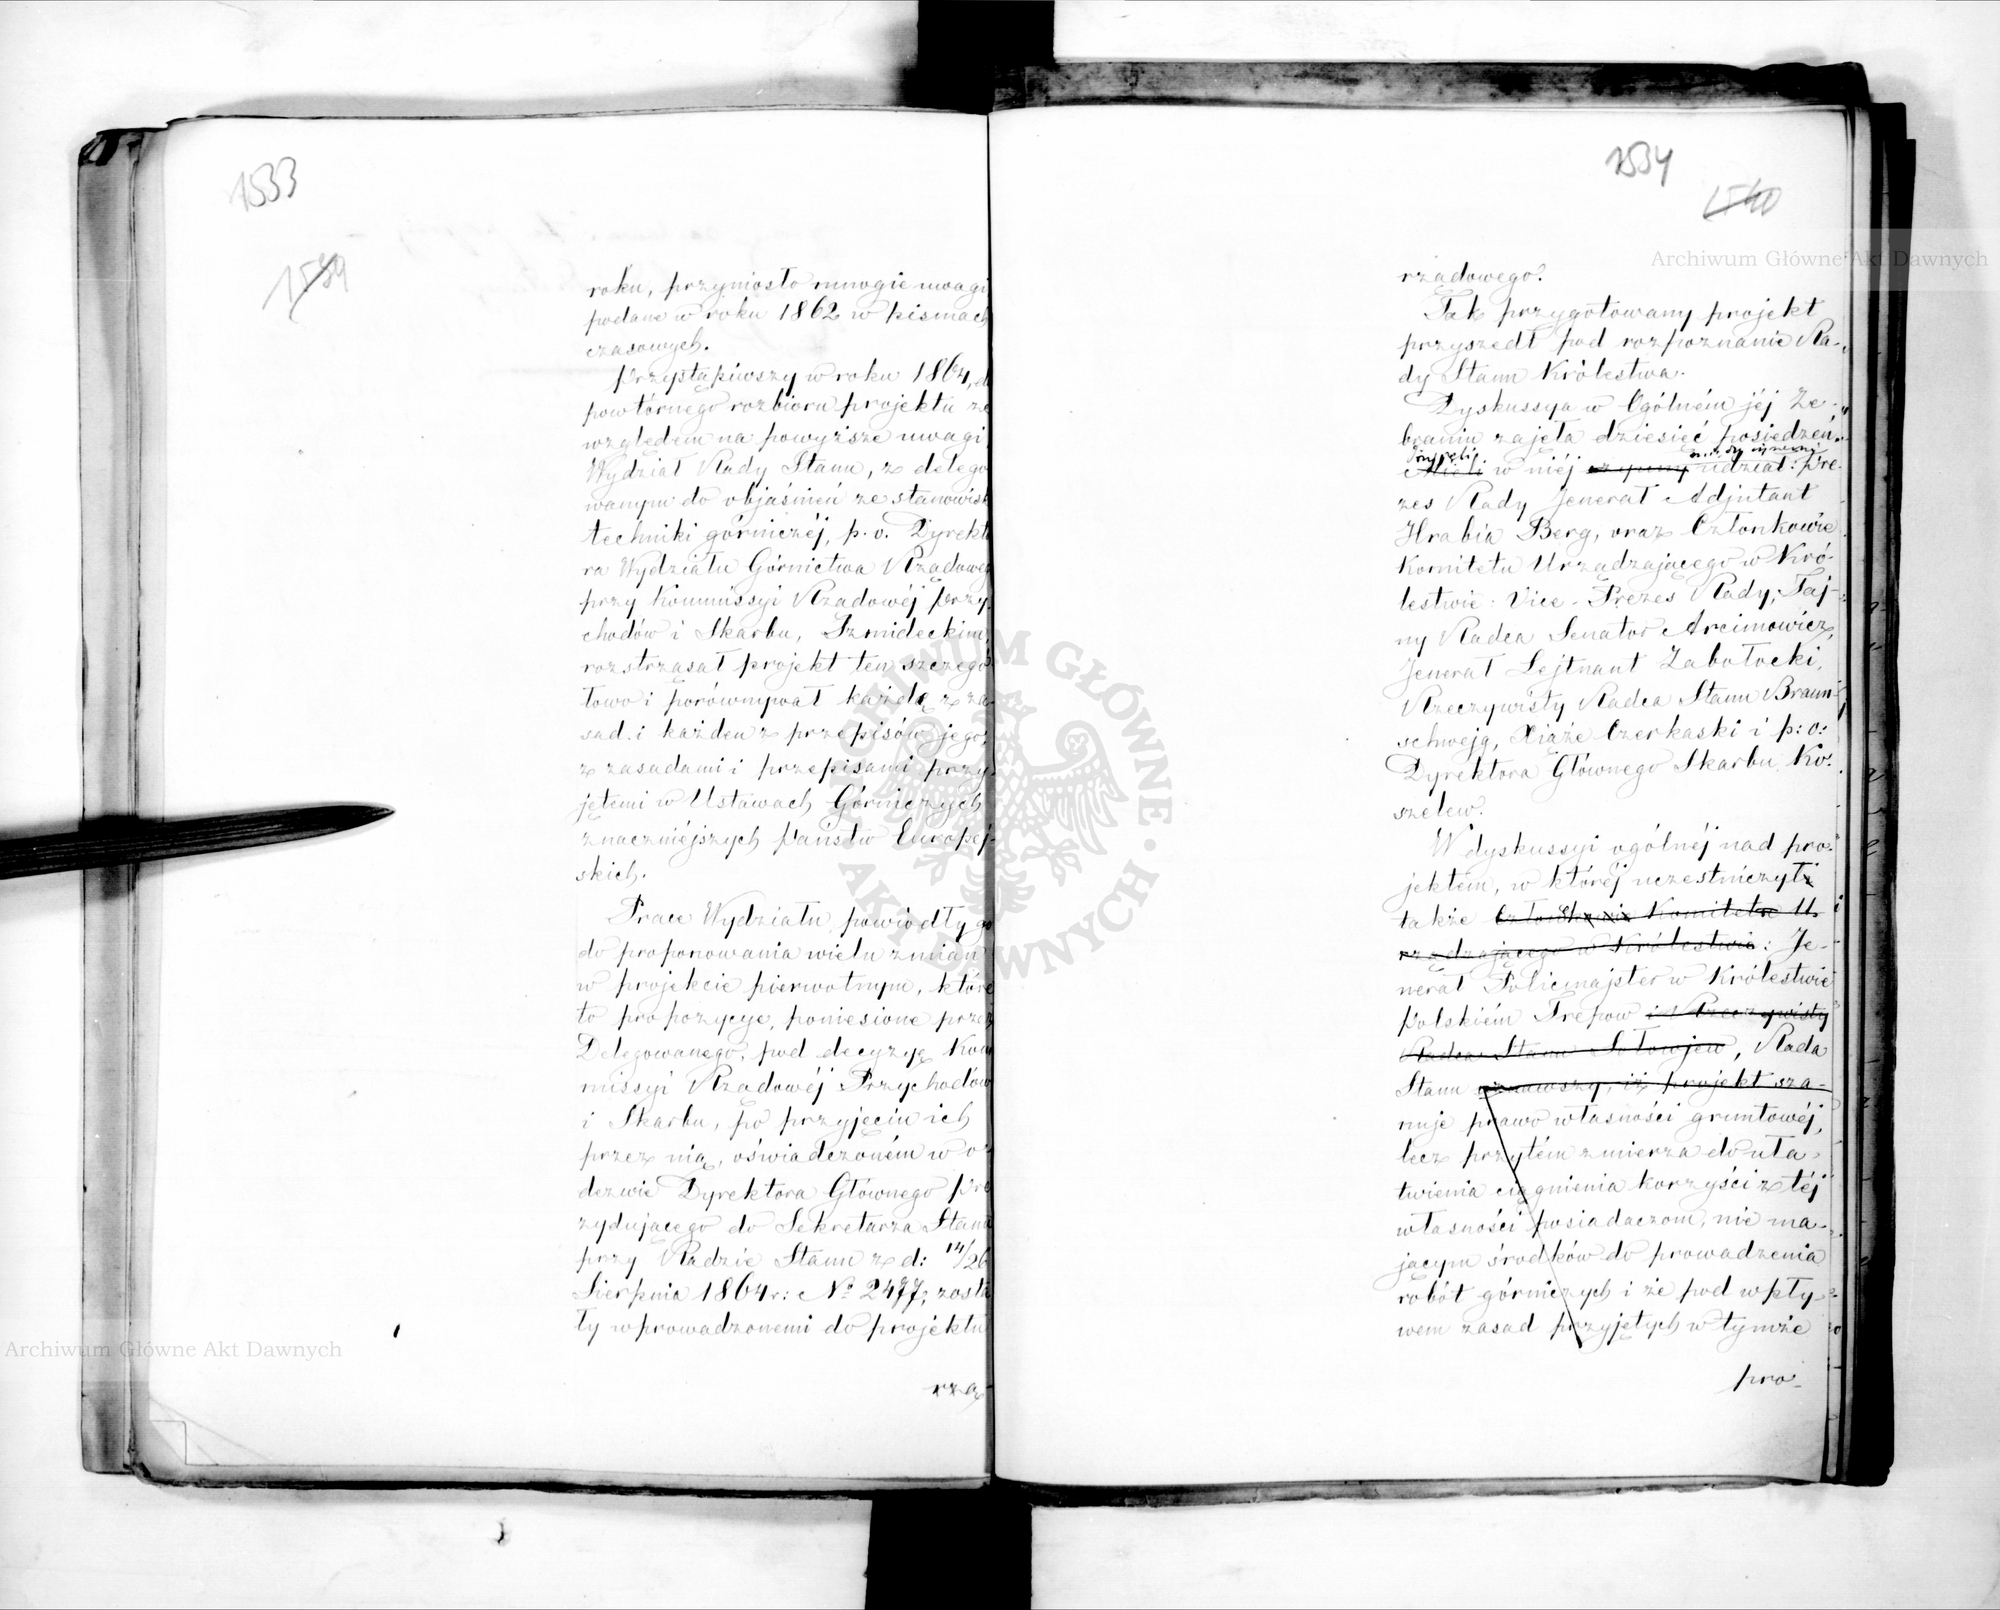 1533
1539
roku, przyniosło mnogie uwagi
podane w roku 1862 w pismach
czasowych.
Przystąpiwszy w roku 1864, do
powtórnego rozbioru projektu ze
względem na powyższe uwagi
Wydział Rady Stanu, z delego
wanym do objaśnień ze stanowisk
techniki górniczéj, p. o. Dyrekto
ra Wydziału Górnictwa Rządoweg
przy Kommissyi Rządowéj Przy-
chodów i Skarbu, Szmideckim,
rozstrząsał projekt ten szczegó-
łowo i porównywał każdą z za-
sad i każden z przepisów jego,
z zasadami i przepisami przy-
jętemi w Ustawach Górniczych
znaczniéjszych Państw Europej-
skich.
Prace Wydziału, powiodły go
do proponowania wielu zmian
w projekcie pierwotnym, które
to propozycye, poniesione przez
Delegowanego, pod decyzyę Kom
missyi Rządowéj Przychodów
i Skarbu, po przyjęciu ich
przez nią, oświadczoném w o-
dezwie Dyrektora Głównego Pre
zydującego do Sekretarza Stanu
przy Radzie Stanu z d: 14/26
Sierpnia 1864 r: Nº 2477, zosta
ły wprowadzonemi do projektu
rzą-
1534
1540
rządowego.
Tak przygotowany projekt
przyszedł pod rozpoznanie Ra-
dy Stanu Królestwa.
Dyskussya w Ogólném jéj Ze-
braniu zajęła dziesięć posiedzeń.
Przyjęli
Mieli w niéj czynny udział: Pre-
zes Rady Jenerał Adjutant
Hrabia Berg, oraz Członkowie
Komitetu Urządzającego w Kró-
lestwie: Vice-Prezes Rady, Taj-
ny Radca Senator Arcimowicz,
Jenerał Lejtnant Zabołocki,
Rzeczywisty Radca Stanu Braun-
schwejg, Xiąże Czerkaski i p: o:
Dyrektora Głównego Skarbu Ko-
szelew.
W dyskussyi ogólnéj nad pro-
jektem, w któréj uczestniczył
także Członkowie Komitetu U-
rządzającego w Królestwie: Je-
nerał Policmajster w Królestwie
Polskiém Trepow i Rzeczywisty
Radca Stanu Sołowjew, Rada
Stanu uznawszy, iż projekt sza-
nuje prawo własności gruntowéj,
lecz przytém zmierza do uła-
twienia ciągnienia korzyści z téj
własności posiadaczom, nie ma-
jącym środków do prowadzenia
robót górniczych i że pod wpły-
wem zasad przyjętych w tymże
pro-
Archiwum Główne Akt Dawnych
Archiwum Główne Akt Dawnych
ARCHIWUM GŁÓWNE AKT DAWNYCH